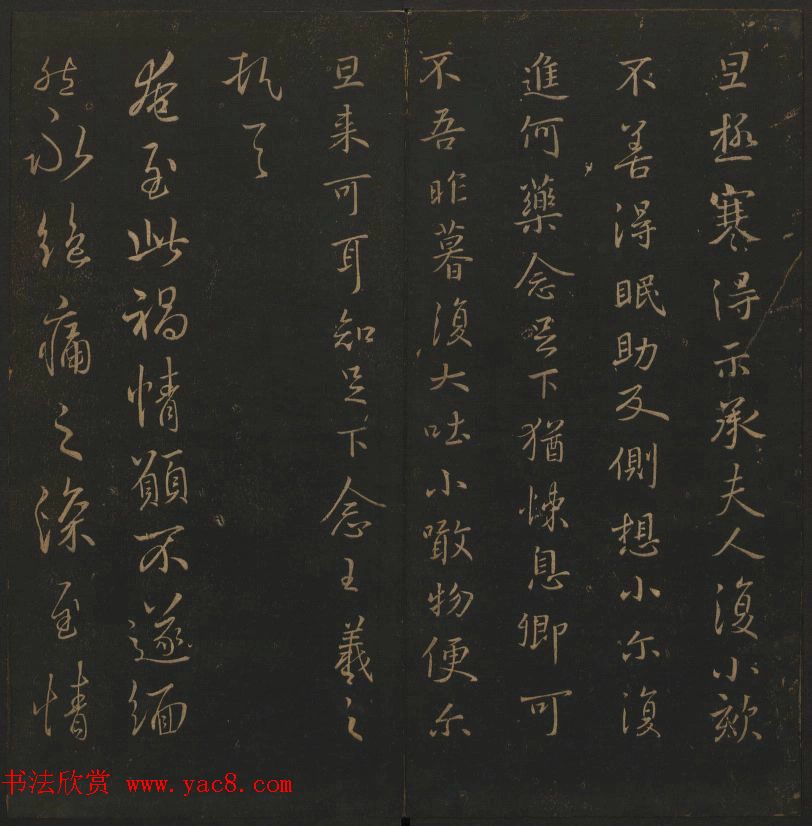 旦極寒得示承夫人復小欬
不善得眠助反側想小尔復
進何藥念足下猶悚息卿可
不吾昨暮復大吐小噉物便尔
旦來可耳知足下念王羲之
頓首
奄至此禍情願不遂緬
然永絕痛之深至情
书法欣赏 www.yac8.com